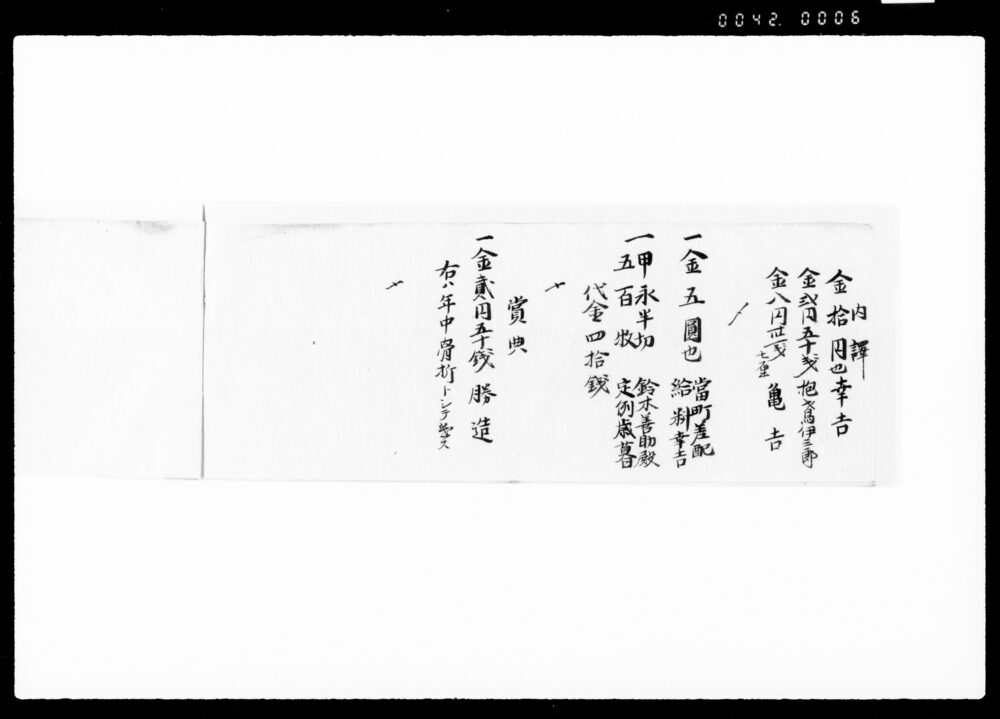 0042. 0006
内譯
金拾円也 幸吉
金弐円五十銭 抱鳶伊三郎
金八円廿二銭七厘 亀吉
一金五圓也 當町差配
給料幸吉
一甲永半切 鈴木善助殿
五百枚 定例歳暮
代金四拾銭
賞典
一金貳円五十銭 勝造
右ハ年中骨折トシテ